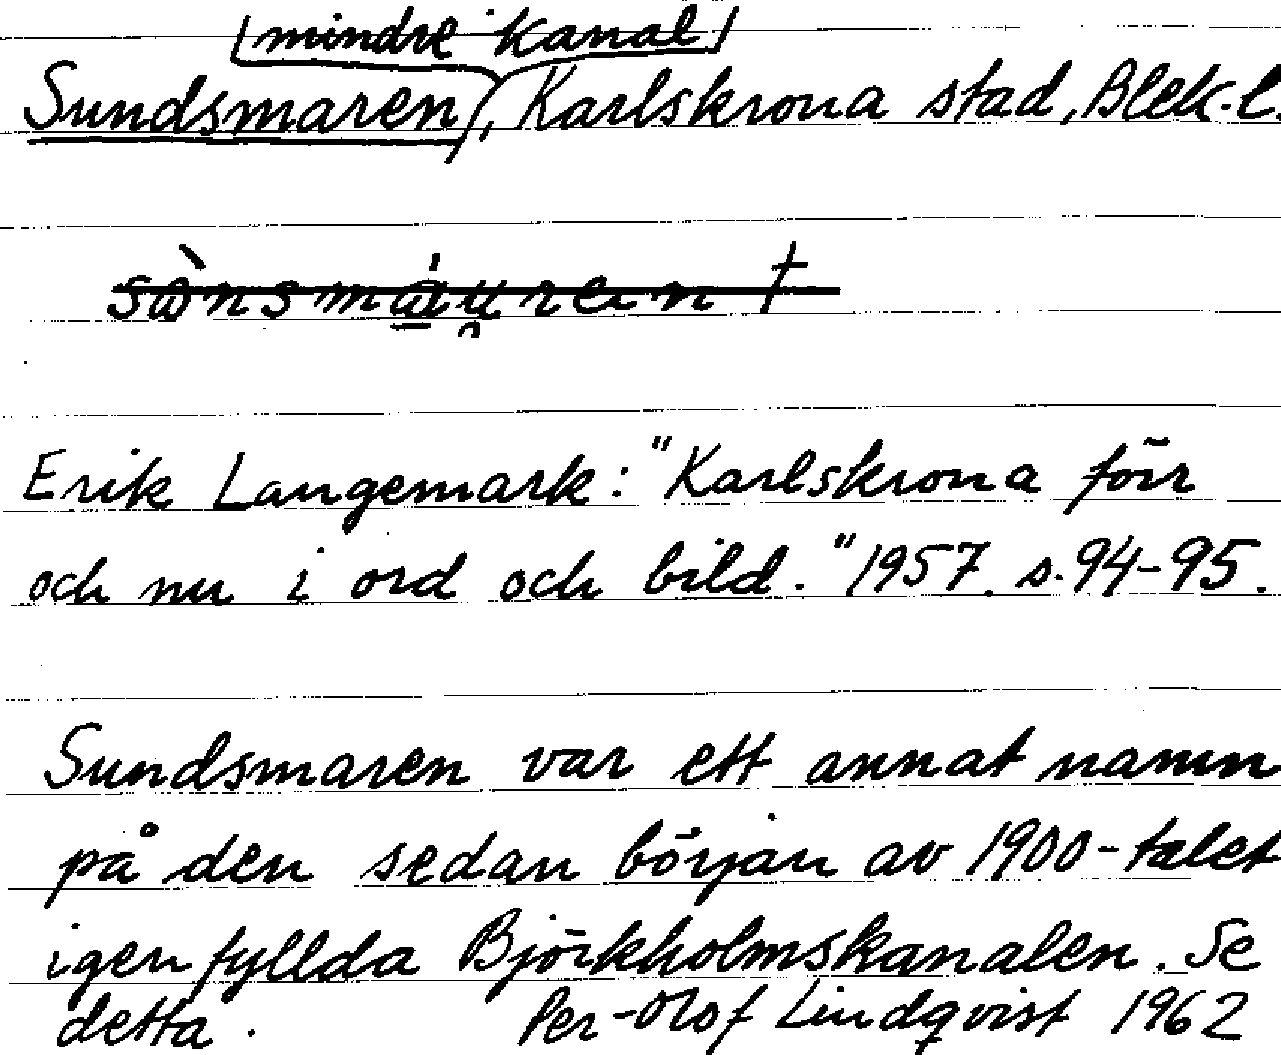 mindre kanal
Sundsmaren, Karlskrona stad, Blek. l.
Erik Langemark: "Karlskrona förr
och nu i ord och bild." 1957. s. 94-95.
Sundsmaren var ett annat namn
på den sedan början av 1900-talet
igenfyllda Björkholmskanalen. Se
detta. Per-Olof Lindqvist 1962